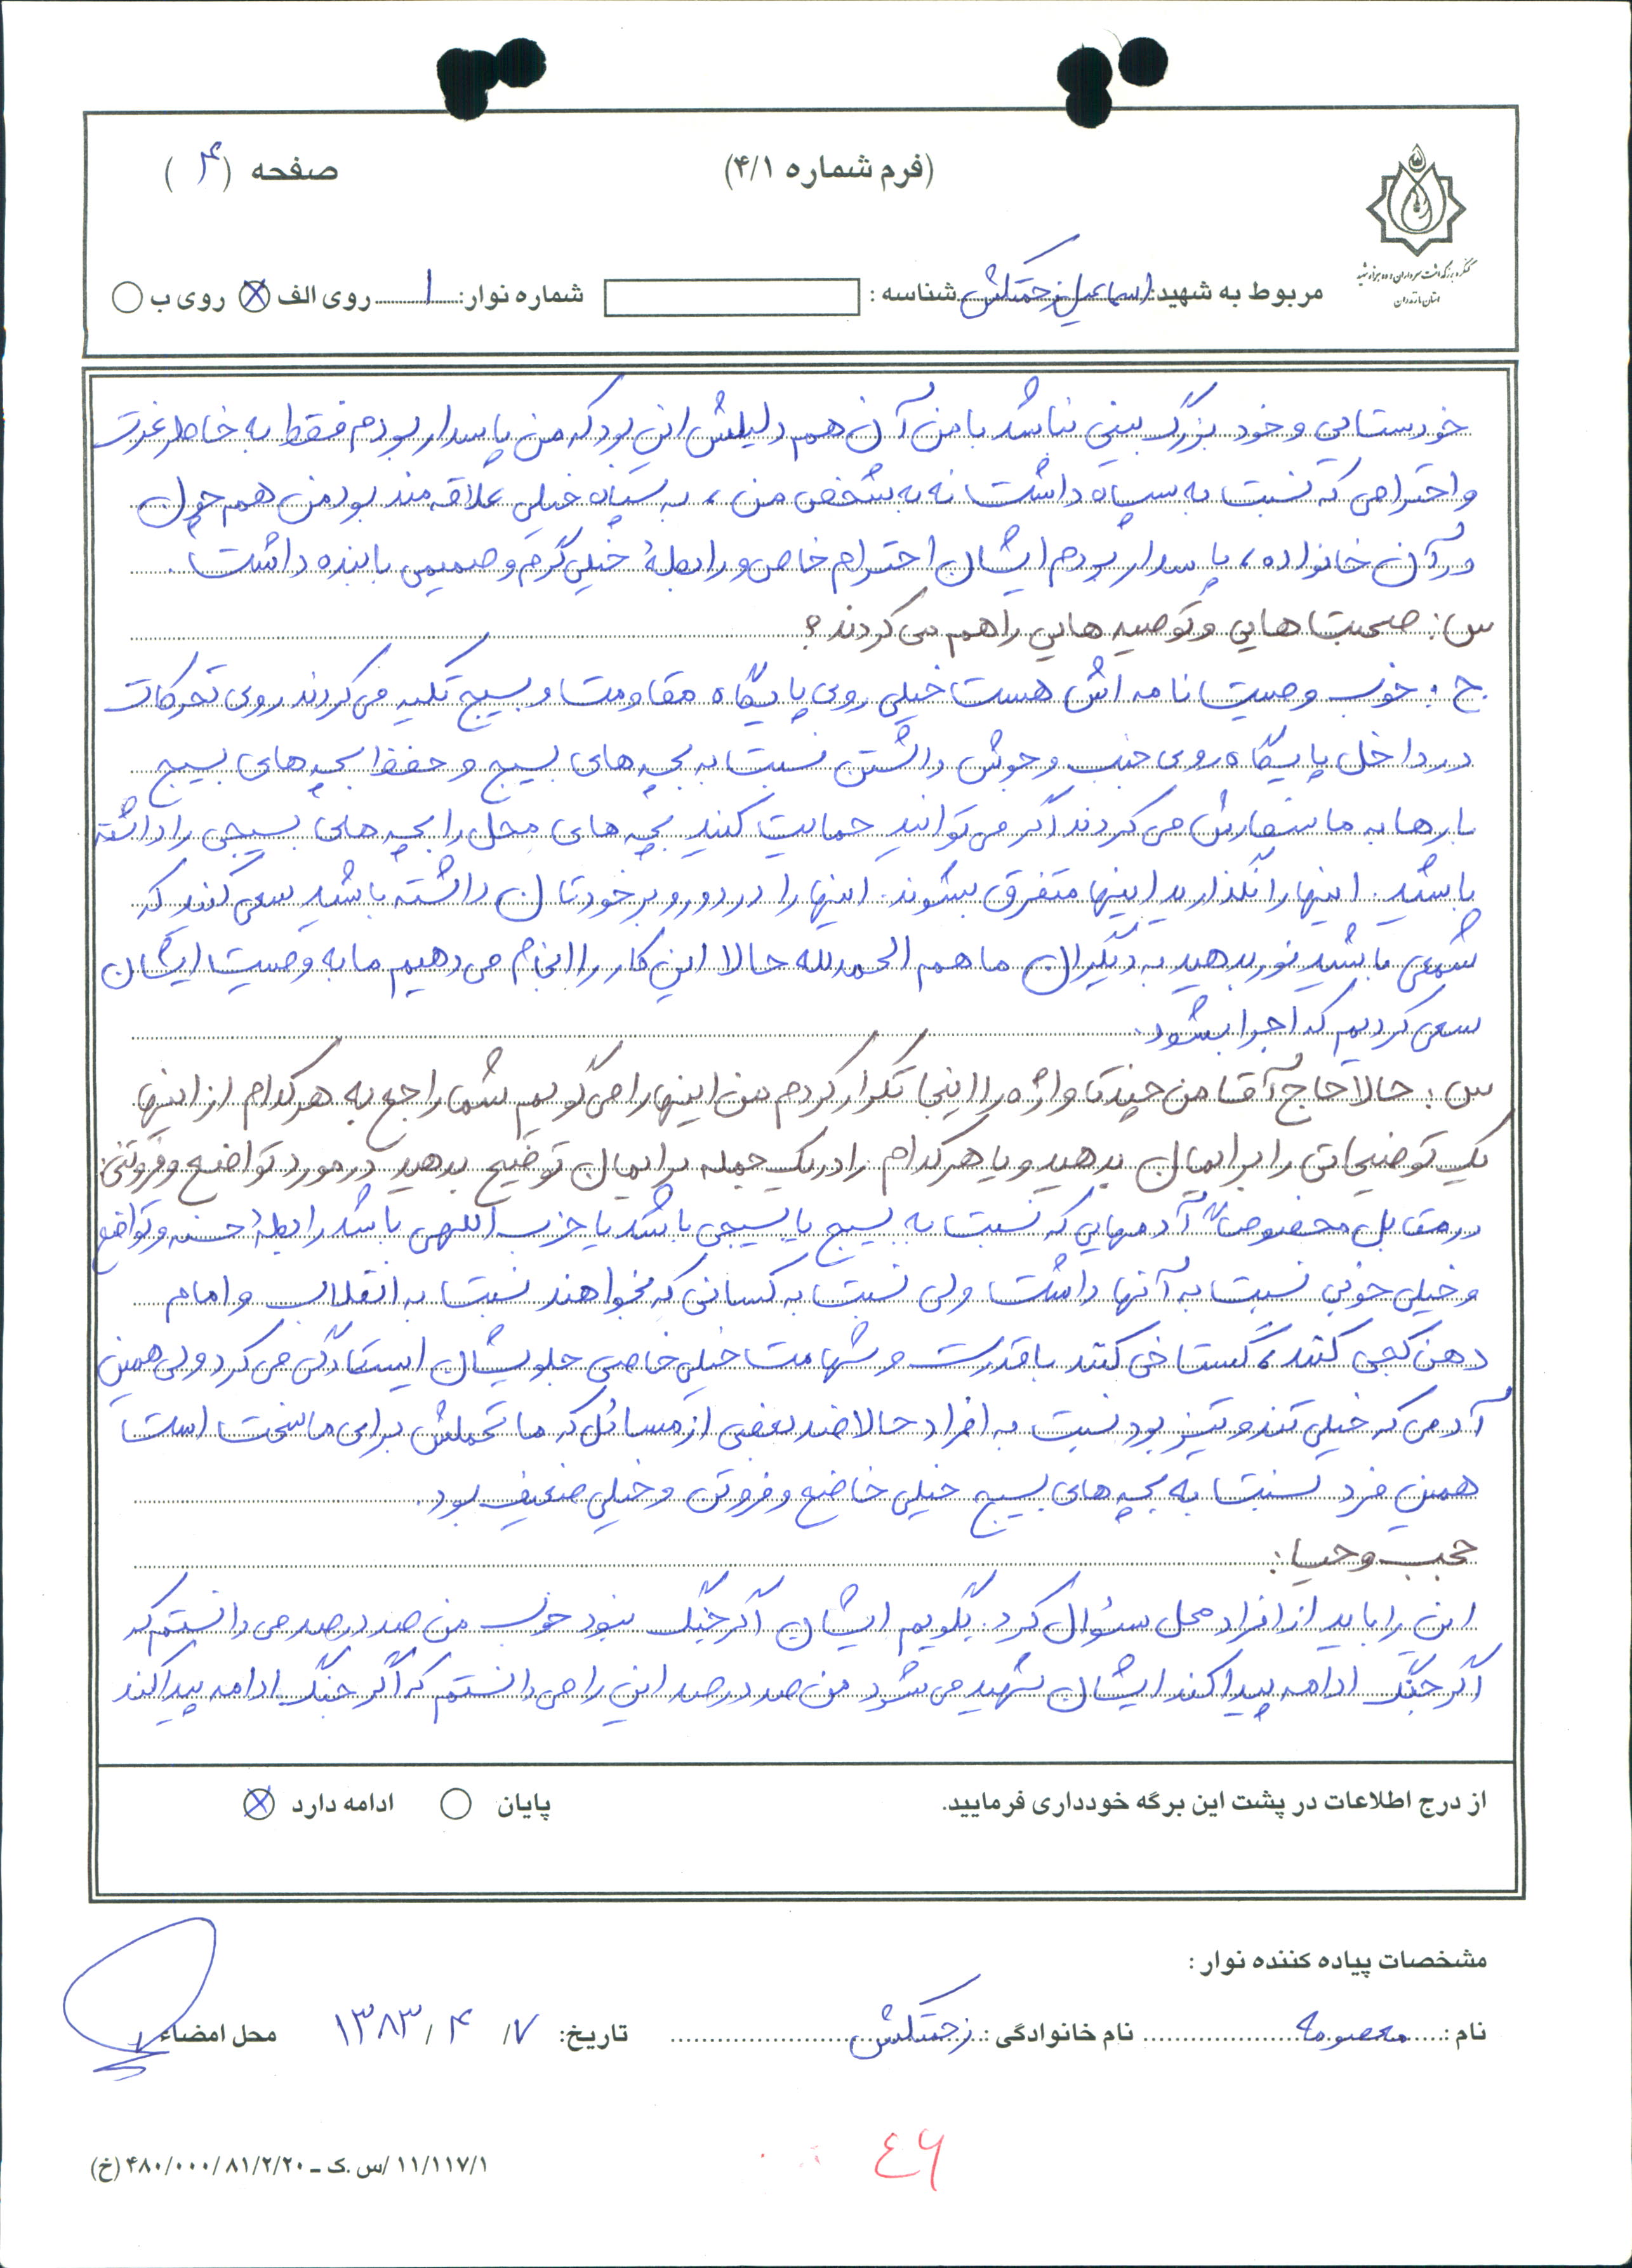 (فرم شماره ۴/۱)
صفحه (۴)
کنگره بزرگداشت سرداران و ده هزار شهید
استان مازندران
مربوط به شهید: اسماعیل زحمتکش شناسه : شماره نوار: ۱ روی الف روی ب
خودستایی و خود بزرگ بینی نباشد با من آن هم دلیلش این بود که من پاسدار بودم فقط به خاطر عزت
و احترامی که نسبت به سپاه داشت نه به شخص من، به سپاه خیلی علاقه مند بود من هم چون
در آن خانواده، پاسدار بودم ایشان احترام خاص و رابطهٔ خیلی گرم و صمیمی با بنده داشت.
س: صحبت هایی و توصیه هایی را هم می کردند؟
ج: خوب وصیت نامه اش هست خیلی روی پایگاه مقاومت و بسیج تکیه می کردند روی تحرکات
در داخل پایگاه روی جنب و جوش داشتن نسبت به بچه های بسیج و حفظ بچه های بسیج
بارها به ما سفارش می کردند اگر می توانید حمایت کنید بچه های محل را بچه های بسیجی را داشته
باشید. اینها را نگذارید اینها متفرق بشوند. اینها را در دور و بر خودتان داشته باشید سعی کنید که
شمعی باشید نور بدهید به دیگران ما هم الحمدلله حالا این کار را انجام می دهیم ما به وصیت ایشان
سعی کردیم که اجرا بشود.
س: حالا حاج آقا من چند تا واژه را اینجا تکرار کردم من اینها را می گویم شما راجع به هر کدام از اینها
یک توضیحاتی را برایمان بدهید و یا هر کدام را در یک جمله برایمان توضیح بدهید در مورد تواضع و فروتنی:
در مقابل مخصوصاً آدمهایی که نسبت به بسیج یا بسیجی باشد یا حزب اللهی باشد رابطهٔ حسنه و تواضع
و خیلی خوبی نسبت به آنها داشت ولی نسبت به کسانی که بخواهند نسبت به انقلاب و امام
دهن کجی کنند، گستاخی کنند با قدرت و شهامت خیلی خاصی جلویشان ایستادگی می کرد ولی همین
آدمی که خیلی تند و تیز بود نسبت به افراد حالا ضد بعضی از مسائل که ما تحملش برای ما سخت است
همین فرد نسبت به بچه های بسیج خیلی خاضع و فروتن و خیلی ضعیف بود.
حجب و حیا:
این را باید از افراد محل سئوال کرد. بگویم ایشان اگر جنگ نبود خوب من صد در صد می دانستم که
اگر جنگ ادامه پیدا کند ایشان شهید می شود من صد در صد این را می دانستم که اگر جنگ ادامه پیدا کند
از درج اطلاعات در پشت این برگه خودداری فرمایید. پایان ادامه دارد
مشخصات پیاده کننده نوار :
نام : معصومه نام خانوادگی : زحمتکش تاریخ: ۷/ ۴ /۱۳۸۳ محل امضاء
٤٦
۱۱/۱۱۷/۱ /س.ک ـ ۴۸۰/۰۰۰/۸۱/۲/۲۰ (خ)